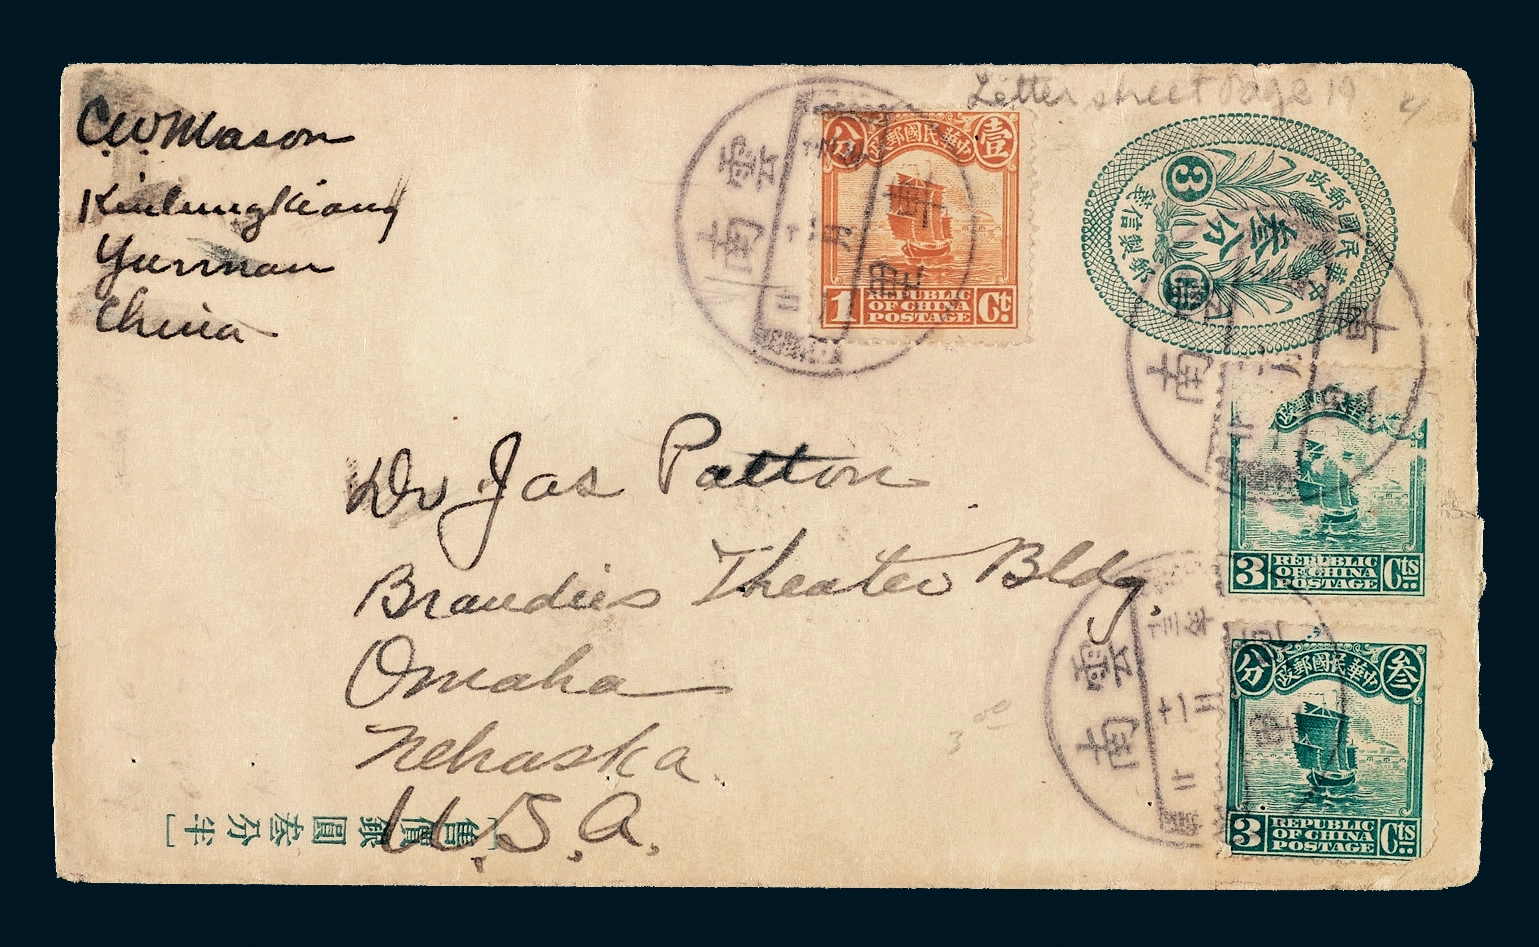 C.W. Mason
Kiulungkiang
Yunnan
China
Letter sheet Page 19
分 中華民國郵政 壹
1 REPUBLIC OF CHINA POSTAGE Ct.
中華民國郵政
郵信製郵
3
叁分
雲南
十二月
雲南
Dr Jas Patton
Brandies Theater Bldg.
Omaha
Nebraska.
U.S.A.
3 REPUBLIC OF CHINA POSTAGE Cts
雲南
十二月
分 中華民國郵政 叁
3 REPUBLIC OF CHINA POSTAGE Cts
[售價銀圓叁分半]